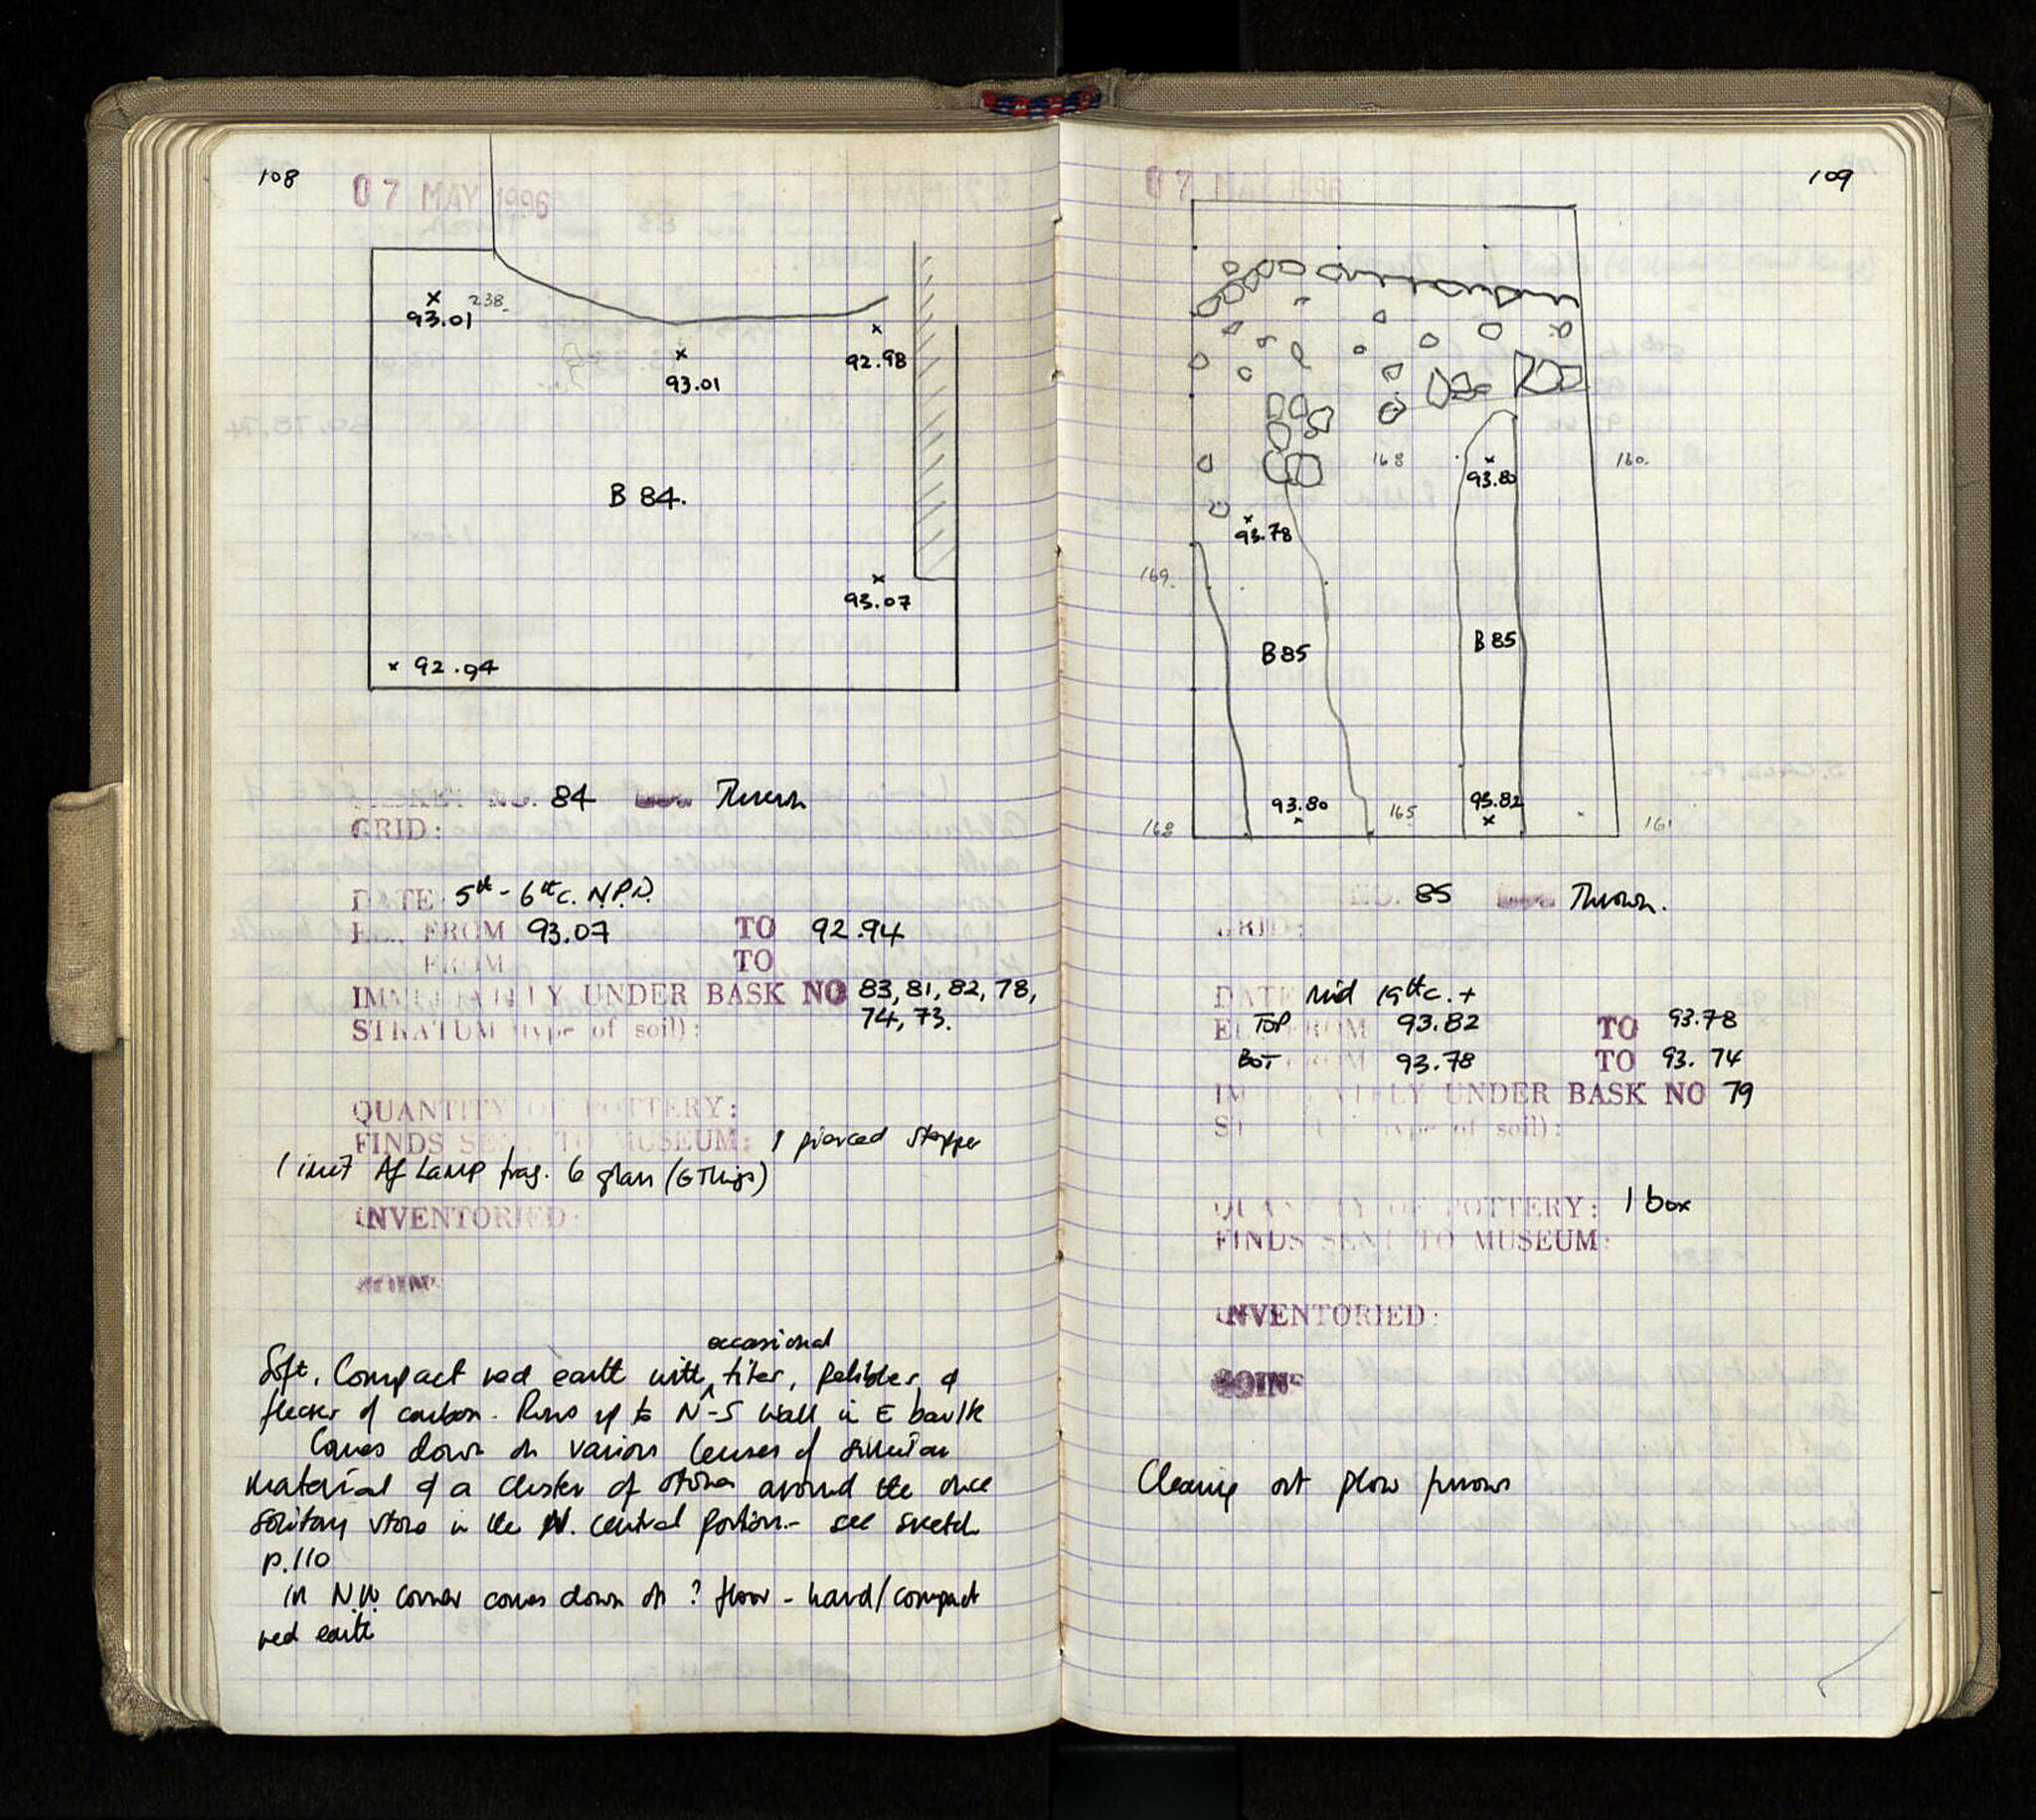 108
07 MAY 1996
93.01
238.
93.01
92.98
B 84.
93.07
92.94
BASKET NO. 84 Thrown
GRID:
DATE 5th - 6th c. N.P.D.
EL. FROM 93.07 TO 92.94
FROM TO
IMMEDIATELY UNDER BASK NO 83, 81, 82, 78,
74, 73.
STRATUM (type of soil):
QUANTITY OF POTTERY:
FINDS SENT TO MUSEUM: 1 pierced stopper
1 Af Lamp frag. 6 glass (6 Things)
INVENTORIED:
COINS
occasional
Soft, Compact red earth with tiles, pebbles &
flecks of carbon. Runs up to N-S wall in E baulk
Comes down on various lenses of similar
material & a cluster of stones around the once
solitary stone in the N. central portion - see sketch
p.110
in NW corner comes down on ? floor - hard/compact
red earth
109
07 MAY 1996
168
93.80
160.
93.78
169.
B 85
B 85
93.80
165
93.82
168
161
NO. 85 Thrown.
GRID:
DATE Mid 19th c. +
EL. TOP FROM 93.82 TO 93.78
BOT FROM 93.78 TO 93.74
IMMEDIATELY UNDER BASK NO 79
STRATUM (type of soil):
QUANTITY OF POTTERY: 1 box
FINDS SENT TO MUSEUM:
INVENTORIED:
COINS
Clearing out plow furrows